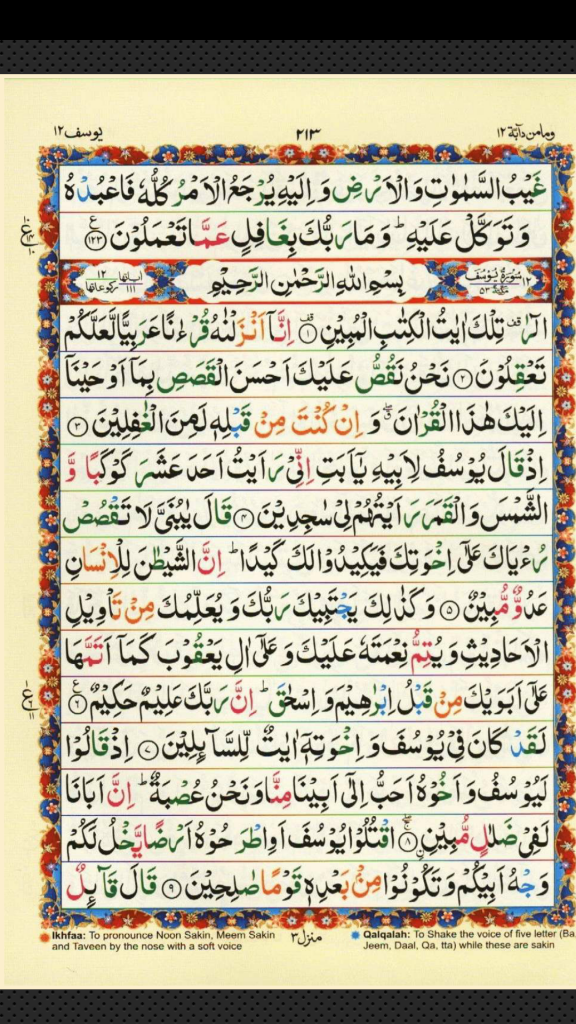 وما من دآبة ١٢
٢١٣
یوسف ١٢
غَيْبُ السَّمٰوٰتِ وَالْاَرْضِ وَاِلَيْهِ يُرْجَعُ الْاَمْرُ كُلُّهٗ فَاعْبُدْهُ
وَتَوَكَّلْ عَلَيْهِ ؕ وَمَا رَبُّكَ بِغَافِلٍ عَمَّا تَعْمَلُوْنَ ﴿۱۲۳﴾
١٢ سُوْرَةُ يُوْسُفَ مَكِّيَّةٌ ٥٣
بِسْمِ اللهِ الرَّحْمٰنِ الرَّحِيْمِ
اٰیاتها ١١١ رکوعاتها ١٢
الٓرٰ ۫ تِلْكَ اٰيٰتُ الْكِتٰبِ الْمُبِيْنِ ﴿۱﴾ اِنَّاۤ اَنْزَلْنٰهُ قُرْءٰنًا عَرَبِيًّا لَّعَلَّكُمْ
تَعْقِلُوْنَ ﴿۲﴾ نَحْنُ نَقُصُّ عَلَيْكَ اَحْسَنَ الْقَصَصِ بِمَاۤ اَوْحَيْنَاۤ
اِلَيْكَ هٰذَا الْقُرْاٰنَ ۖ وَاِنْ كُنْتَ مِنْ قَبْلِهٖ لَمِنَ الْغٰفِلِيْنَ ﴿۳﴾
اِذْ قَالَ يُوْسُفُ لِاَبِيْهِ يٰۤاَبَتِ اِنِّيْ رَاَيْتُ اَحَدَ عَشَرَ كَوْكَبًا وَّ
الشَّمْسَ وَالْقَمَرَ رَاَيْتُهُمْ لِيْ سٰجِدِيْنَ ﴿۴﴾ قَالَ يٰبُنَيَّ لَا تَقْصُصْ
رُءْيَاكَ عَلٰۤى اِخْوَتِكَ فَيَكِيْدُوْا لَكَ كَيْدًا ؕ اِنَّ الشَّيْطٰنَ لِلْاِنْسَانِ
عَدُوٌّ مُّبِيْنٌ ﴿۵﴾ وَكَذٰلِكَ يَجْتَبِيْكَ رَبُّكَ وَيُعَلِّمُكَ مِنْ تَاْوِيْلِ
الْاَحَادِيْثِ وَيُتِمُّ نِعْمَتَهٗ عَلَيْكَ وَعَلٰۤى اٰلِ يَعْقُوْبَ كَمَاۤ اَتَمَّهَا
عَلٰۤى اَبَوَيْكَ مِنْ قَبْلُ اِبْرٰهِيْمَ وَاِسْحٰقَ ؕ اِنَّ رَبَّكَ عَلِيْمٌ حَكِيْمٌ ﴿۶﴾
لَقَدْ كَانَ فِيْ يُوْسُفَ وَاِخْوَتِهٖۤ اٰيٰتٌ لِّلسَّآئِلِيْنَ ﴿۷﴾ اِذْ قَالُوْا
لَيُوْسُفُ وَاَخُوْهُ اَحَبُّ اِلٰۤى اَبِيْنَا مِنَّا وَنَحْنُ عُصْبَةٌ ؕ اِنَّ اَبَانَا
لَفِيْ ضَلٰلٍ مُّبِيْنِ ﴿۸﴾ اۨقْتُلُوْا يُوْسُفَ اَوِ اطْرَحُوْهُ اَرْضًا يَّخْلُ لَكُمْ
وَجْهُ اَبِيْكُمْ وَتَكُوْنُوْا مِنْۢ بَعْدِهٖ قَوْمًا صٰلِحِيْنَ ﴿۹﴾ قَالَ قَآئِلٌ
Ikhfaa: To pronounce Noon Sakin, Meem Sakin
and Taveen by the nose with a soft voice
منزل ٣
Qalqalah: To Shake the voice of five letter (Ba,
Jeem, Daal, Qa, tta) while these are sakin